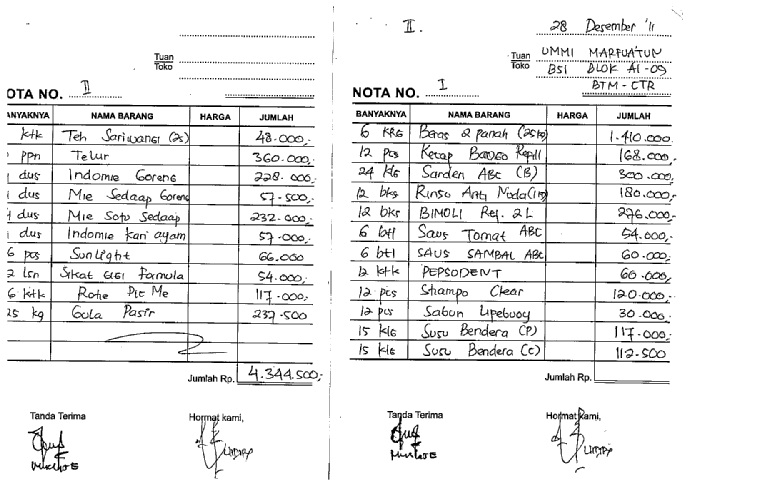 Tuan
Toko
OTA NO. II
ANYAKNYA NAMA BARANG HARGA JUMLAH
ktk Teh Sariwangi (25) 48.000,-
ppn Telur 360.000,-
dus Indomie Goreng 228.000,-
dus Mie Sedaap Goreng 57.500,-
dus Mie Soto Sedaap 232.000,-
dus Indomie Kari ayam 57.000,-
6 pcs Sunlight 66.000
2 lsn Sikat Gigi formula 54.000,-
6 ktk 117.000,-
25 kg Gula Pasir 237.500
Jumlah Rp. 4.344.500,-
Tanda Terima Hormat kami,
II.
28 Desember '11
Tuan UMMI MARFUATUN
Toko BSI BLOK A1-09
NOTA NO. I BTM-CTR
BANYAKNYA NAMA BARANG HARGA JUMLAH
6 KRG Beras 2 panah (25kg) 1.410.000
12 pcs Kecap Bango Refill 168.000,-
24 klg Sarden ABC (B) 300.000
12 bks Rinso Anti Noda 180.000,-
12 bks BIMOLI Reg. 2L 276.000,-
6 btl Saus Tomat ABC 54.000,-
6 btl SAUS SAMBAL ABC 60.000,-
12 ktk PEPSODENT 60.000,-
12 pcs Shampo Clear 120.000,-
12 pcs Sabun Lifebuoy 30.000,-
15 klg Susu Bendera (P) 117.000,-
15 klg Susu Bendera (C) 112.500
Jumlah Rp.
Tanda Terima Hormat kami,